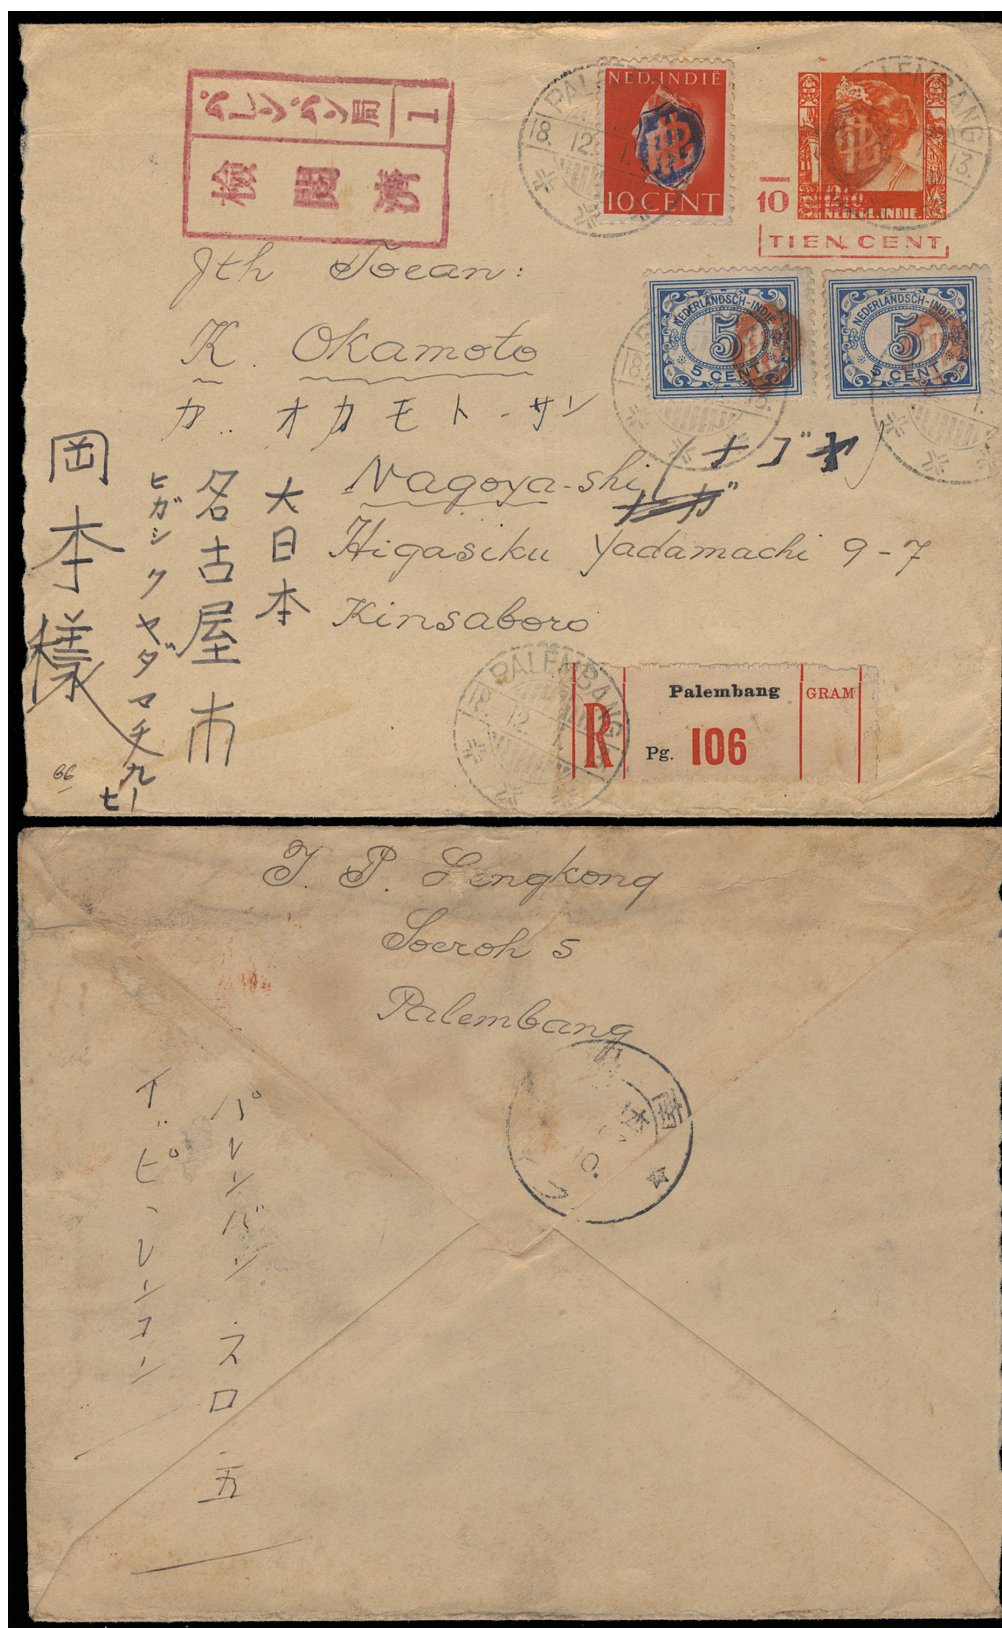 パレンバン局
1
検閲済
PALEMBANG
18.12.
NED. INDIË
10 CENT
PALEMBANG
13.
10
NEDERL. INDIE.
TIEN CENT
Jth Toean:
NEDERLANDSCH-INDIE
5
5 CENT
NEDERLANDSCH-INDIE
5
5 CENT
K. Okamoto
カ.. オカモト-サン
Nagoya-shi (ナゴヤ)
Higasiku Yadamachi 9-7
Kinsaboro
大日本
名古屋市
ヒガシクヤダマチ九ー七
岡本様
66
PALEMBANG
12.
R
Palembang
GRAM
Pg. 106
J. P. Lengkong
Soeroh 5
Palembang
パレンバン.スロ.五
イ.ピ.レンコン